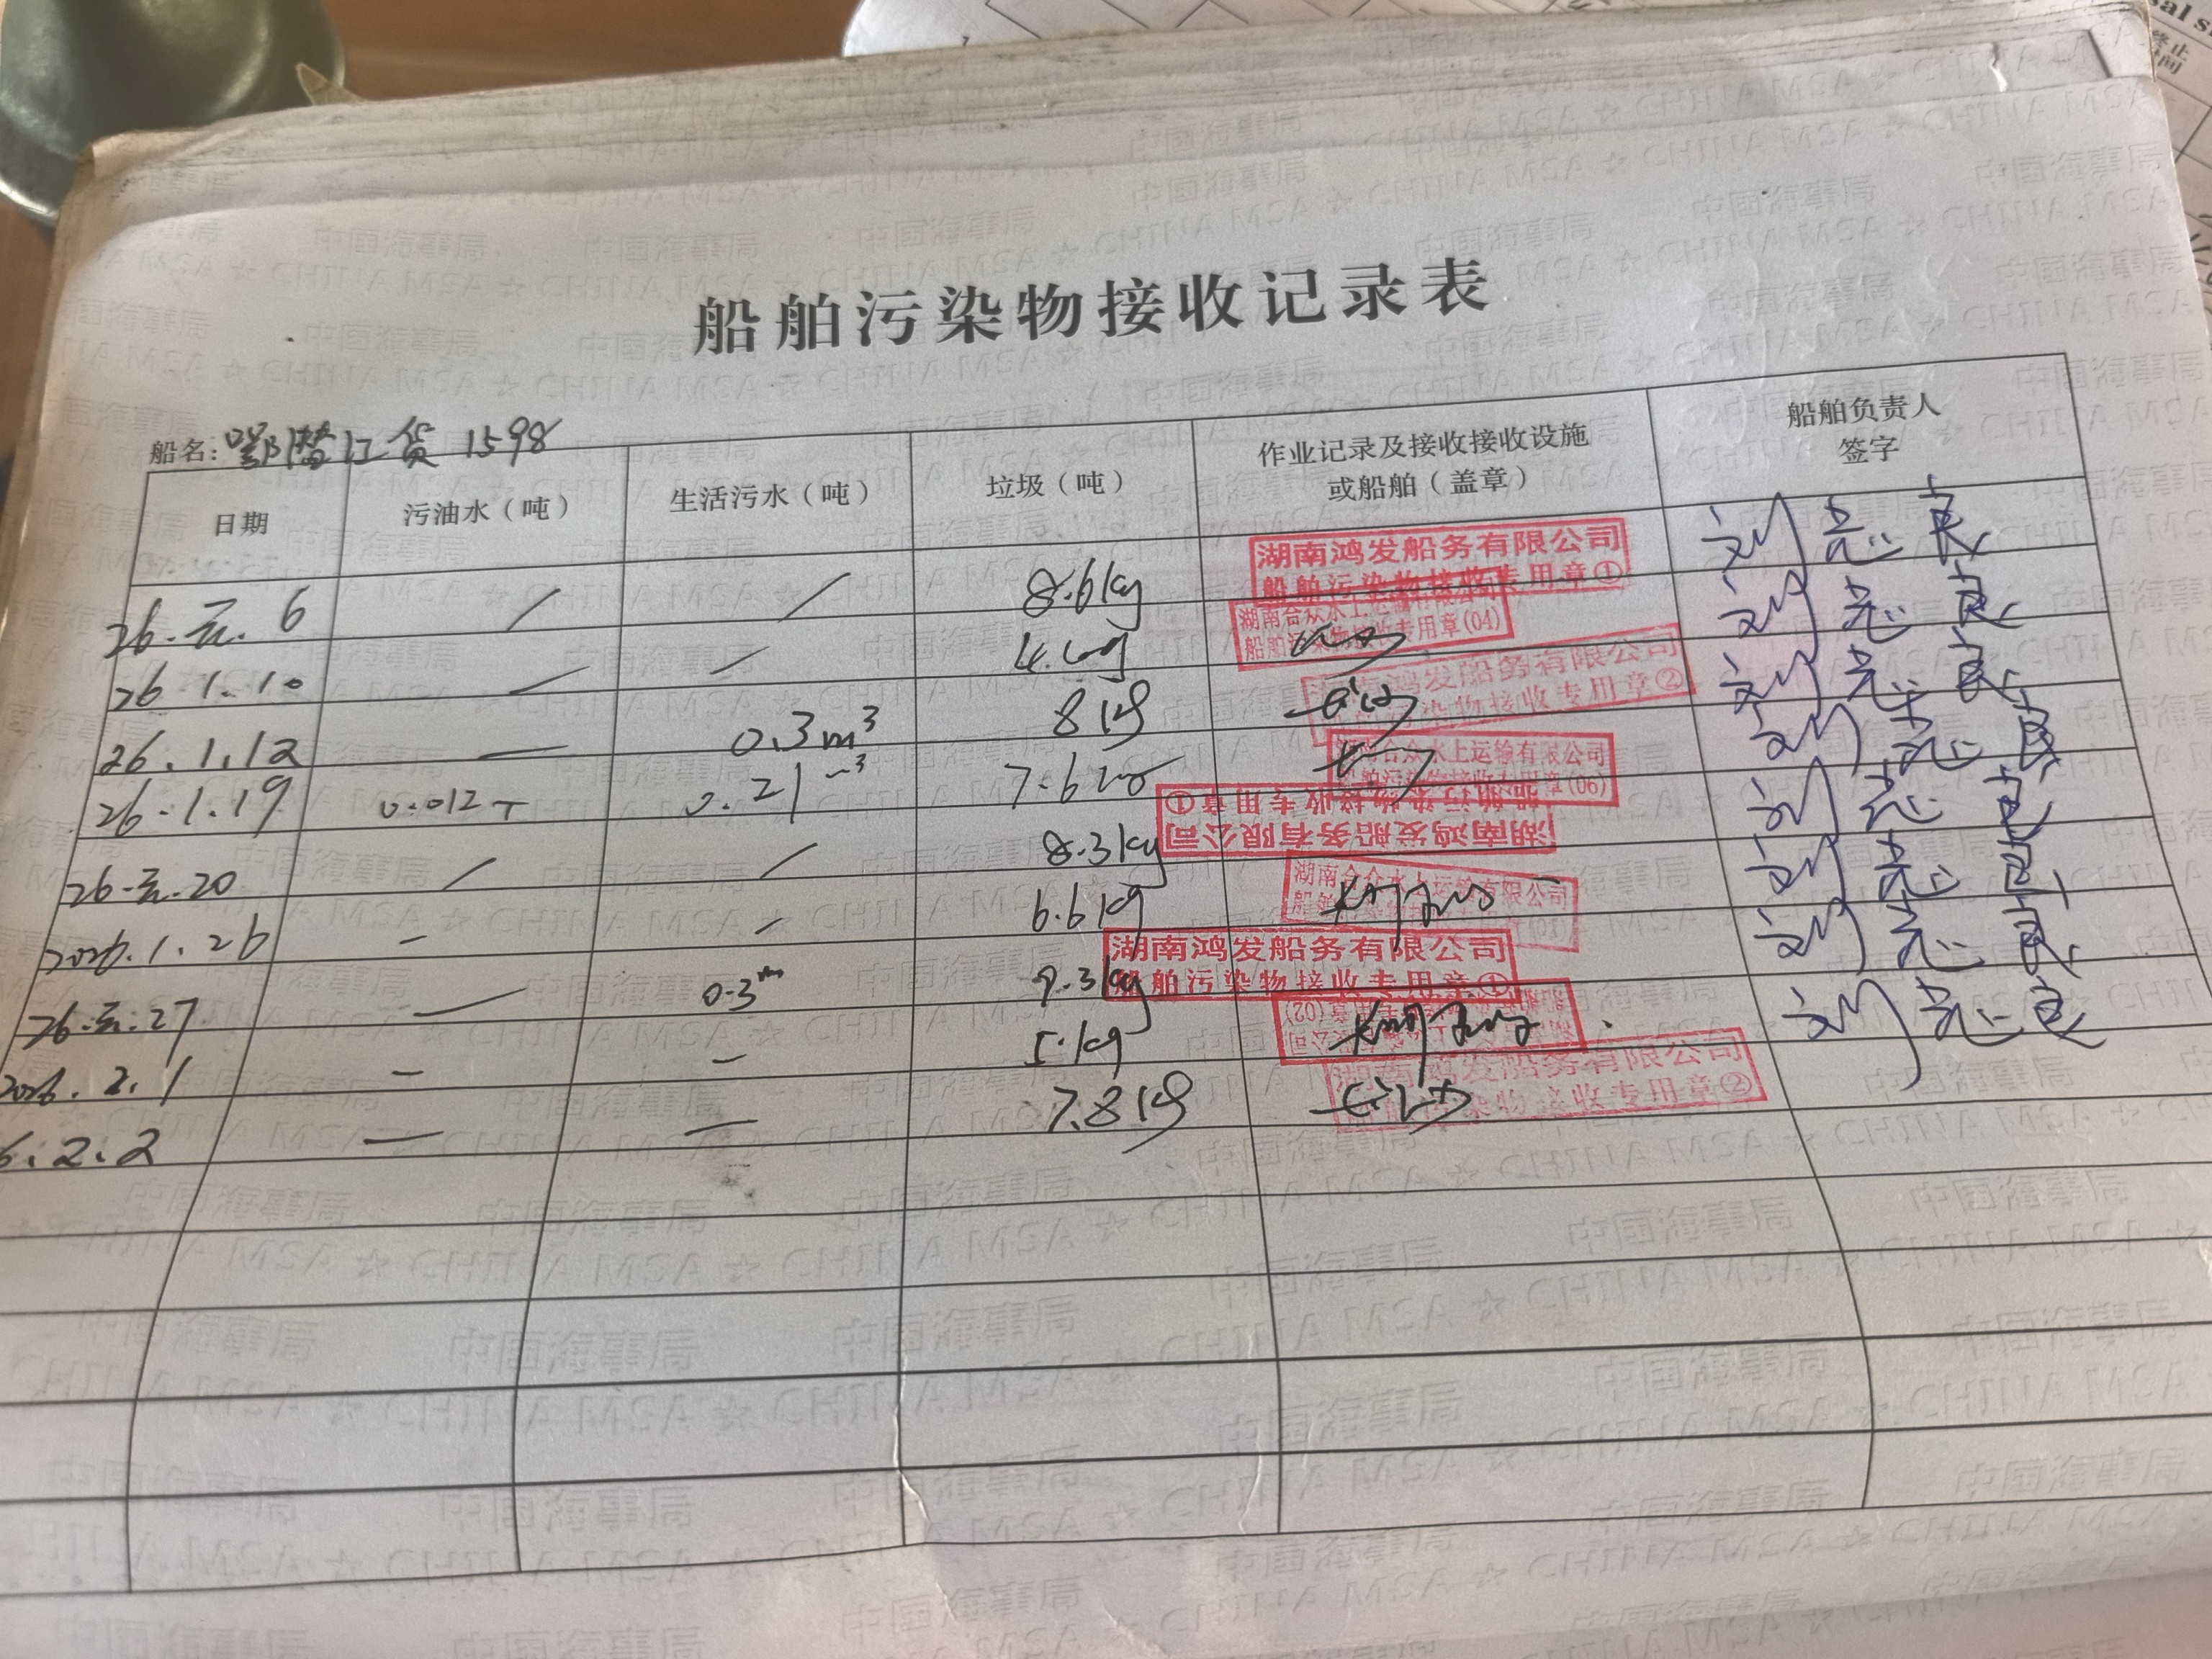 船舶污染物接收记录表
船名: 鄂潜江货 1598
日期 污油水（吨） 生活污水（吨） 垃圾（吨） 作业记录及接收接收设施或船舶（盖章） 船舶负责人签字
26.元.6 / / 8.6kg 湖南鸿发船务有限公司 船舶污染物接收专用章①
26.1.10 — — 湖南合众水上运输有限公司 船舶污染物接收专用章(04)
26.1.12 — 0.3m³ 8kg 湖南鸿发船务有限公司 船舶污染物接收专用章②
26.1.19 0.012T 0.21m³ 7.6 湖南合众水上运输有限公司 船舶污染物接收专用章(06)
26.元.20 / / 8.3kg 湖南鸿发船务有限公司 船舶污染物接收专用章①
2026.1.26 - - 6.6kg 湖南合众水上运输有限公司
26.元.27 — 0.3m 9.3kg 湖南鸿发船务有限公司 船舶污染物接收专用章①
2026.2.1 - - 5.1kg 专用章(02)
6.2.2 — — 7.8kg 湖南鸿发船务有限公司 船舶污染物接收专用章②
中国海事局
CHINA MSA ☆ CHINA MSA
终止
时间